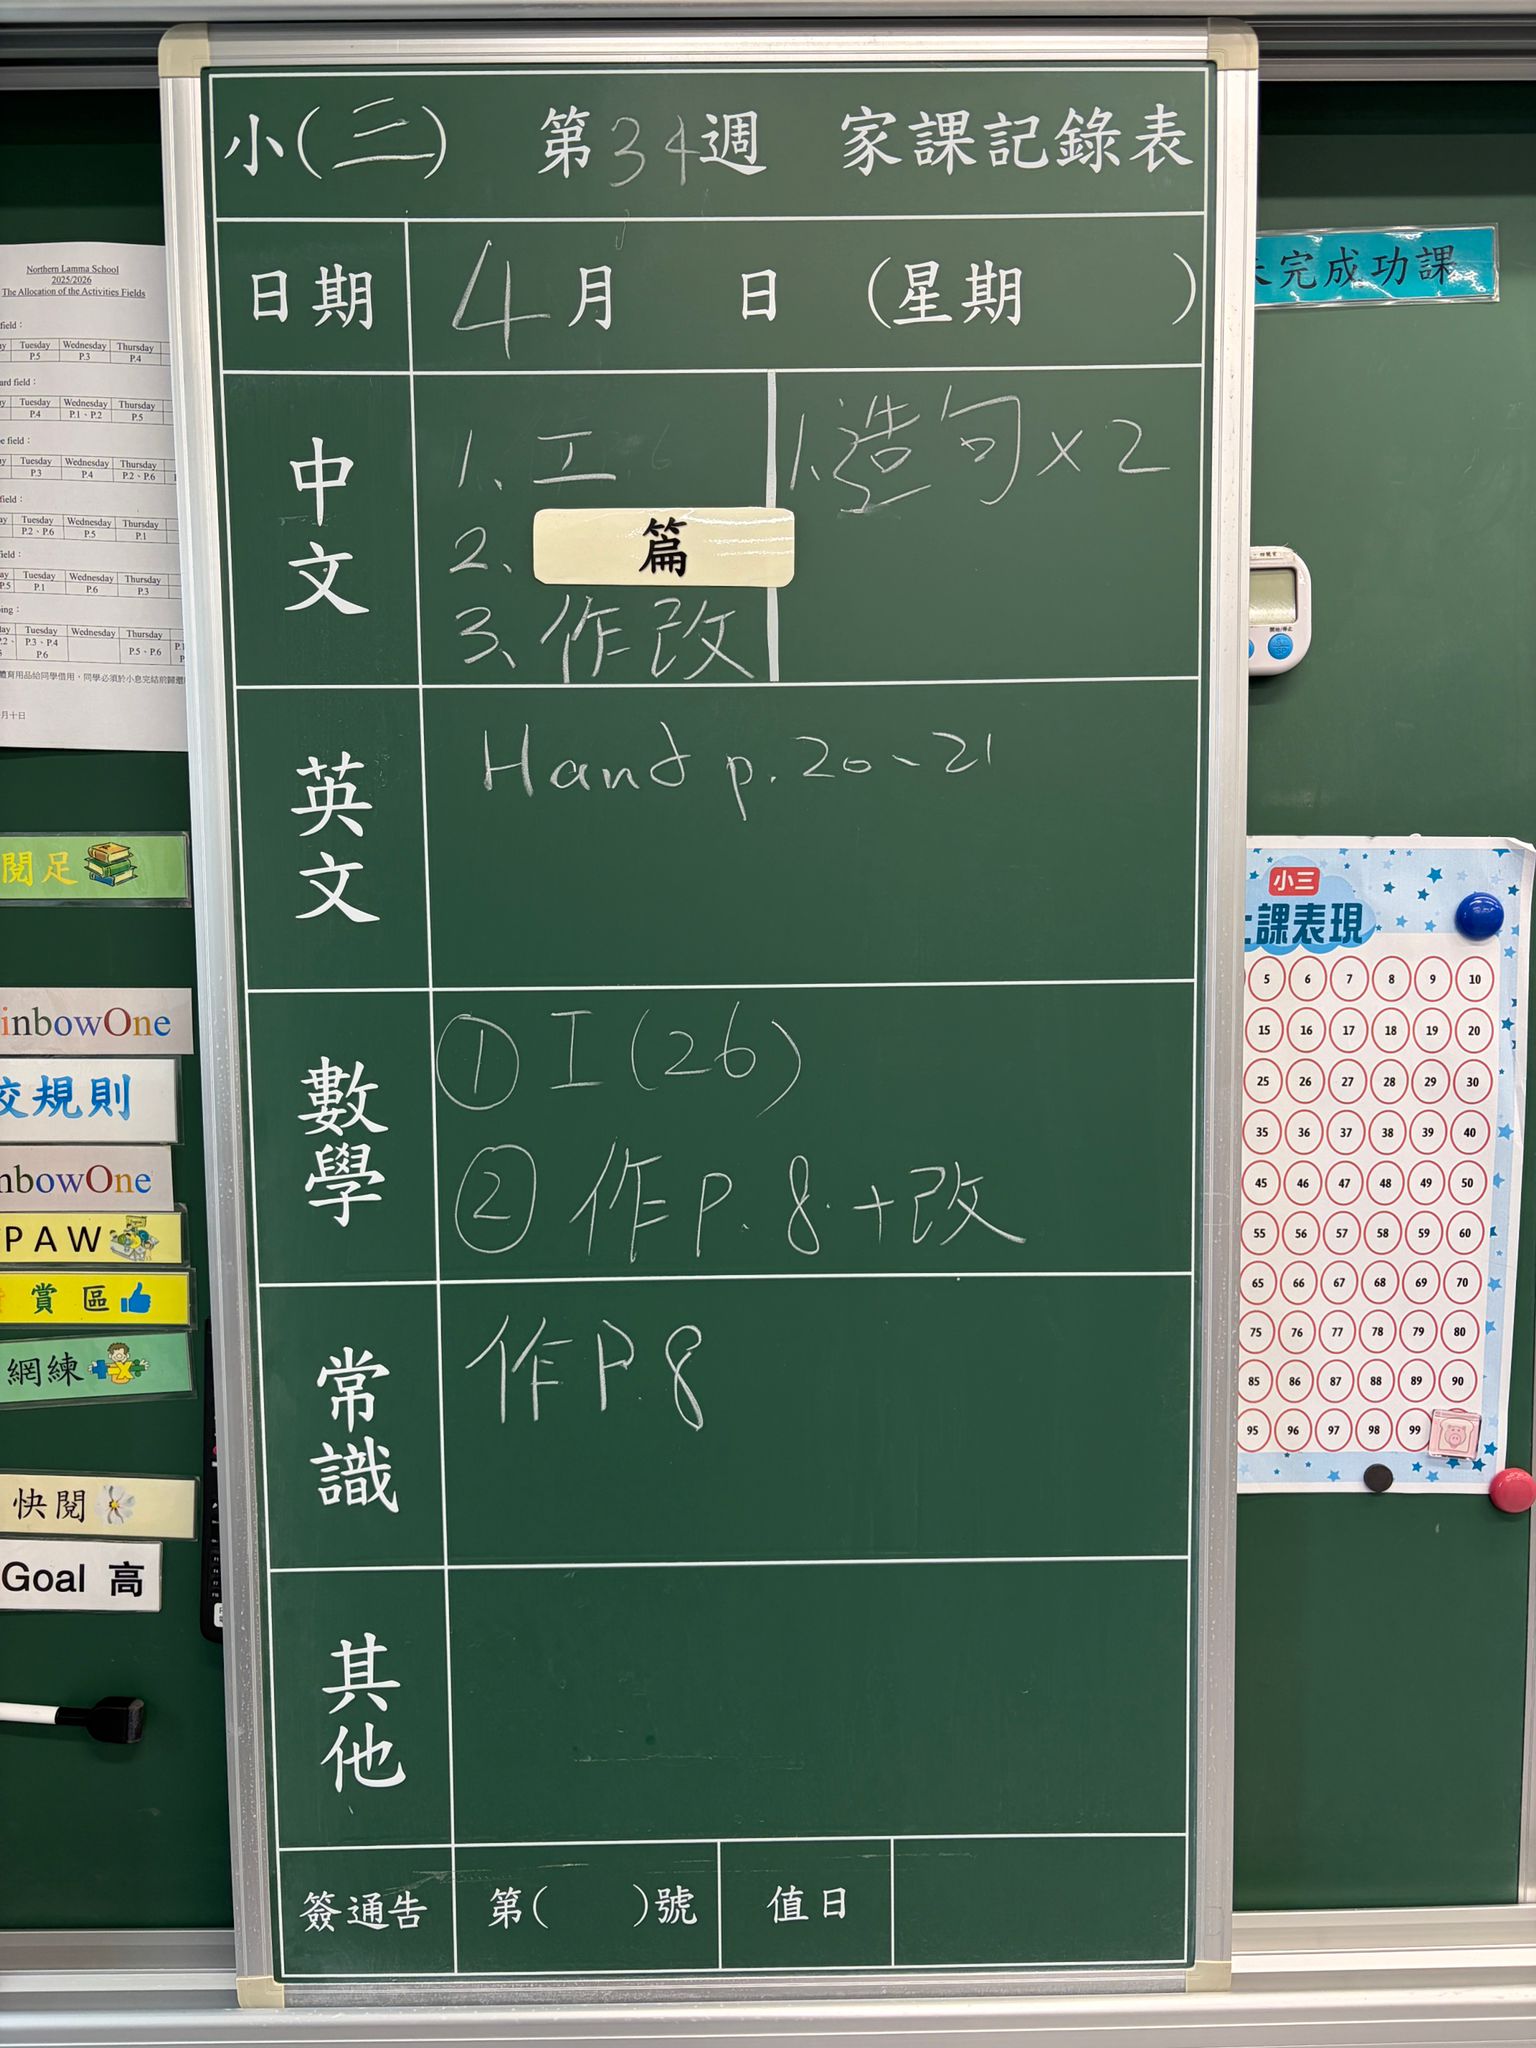 小(三) 第34週 家課記錄表
日期 4月 日 (星期 )
中文
1、工
2、篇
3、作改
1.造句×2
英文
Hand p.20-21
數學
① I (26)
② 作 P. 8. + 改
常識
作 P.8
其他
簽通告 第( )號 值日
Northern Lamma School
2025/2026
The Allocation of the Activities Fields
field：
Tuesday Wednesday Thursday
P.5 P.3 P.4
ard field：
Tuesday Wednesday Thursday
P.4 P.1、P.2 P.5
e field：
Tuesday Wednesday Thursday
P.3 P.4 P.2、P.6
field：
Tuesday Wednesday Thursday
P.2、P.6 P.5 P.1
ield：
Tuesday Wednesday Thursday
P.5 P.1 P.6 P.3
ing：
Tuesday Wednesday Thursday
P.3、P.4 P.5、P.6
P.6
體育用品給同學借用，同學必須於小息完結前歸還
月十日
閱足
inbowOne
校規則
nbowOne
PAW
賞區
網練
快閱
Goal 高
完成功課
開始/停止
小三
上課表現
5 6 7 8 9 10
15 16 17 18 19 20
25 26 27 28 29 30
35 36 37 38 39 40
45 46 47 48 49 50
55 56 57 58 59 60
65 66 67 68 69 70
75 76 77 78 79 80
85 86 87 88 89 90
95 96 97 98 99